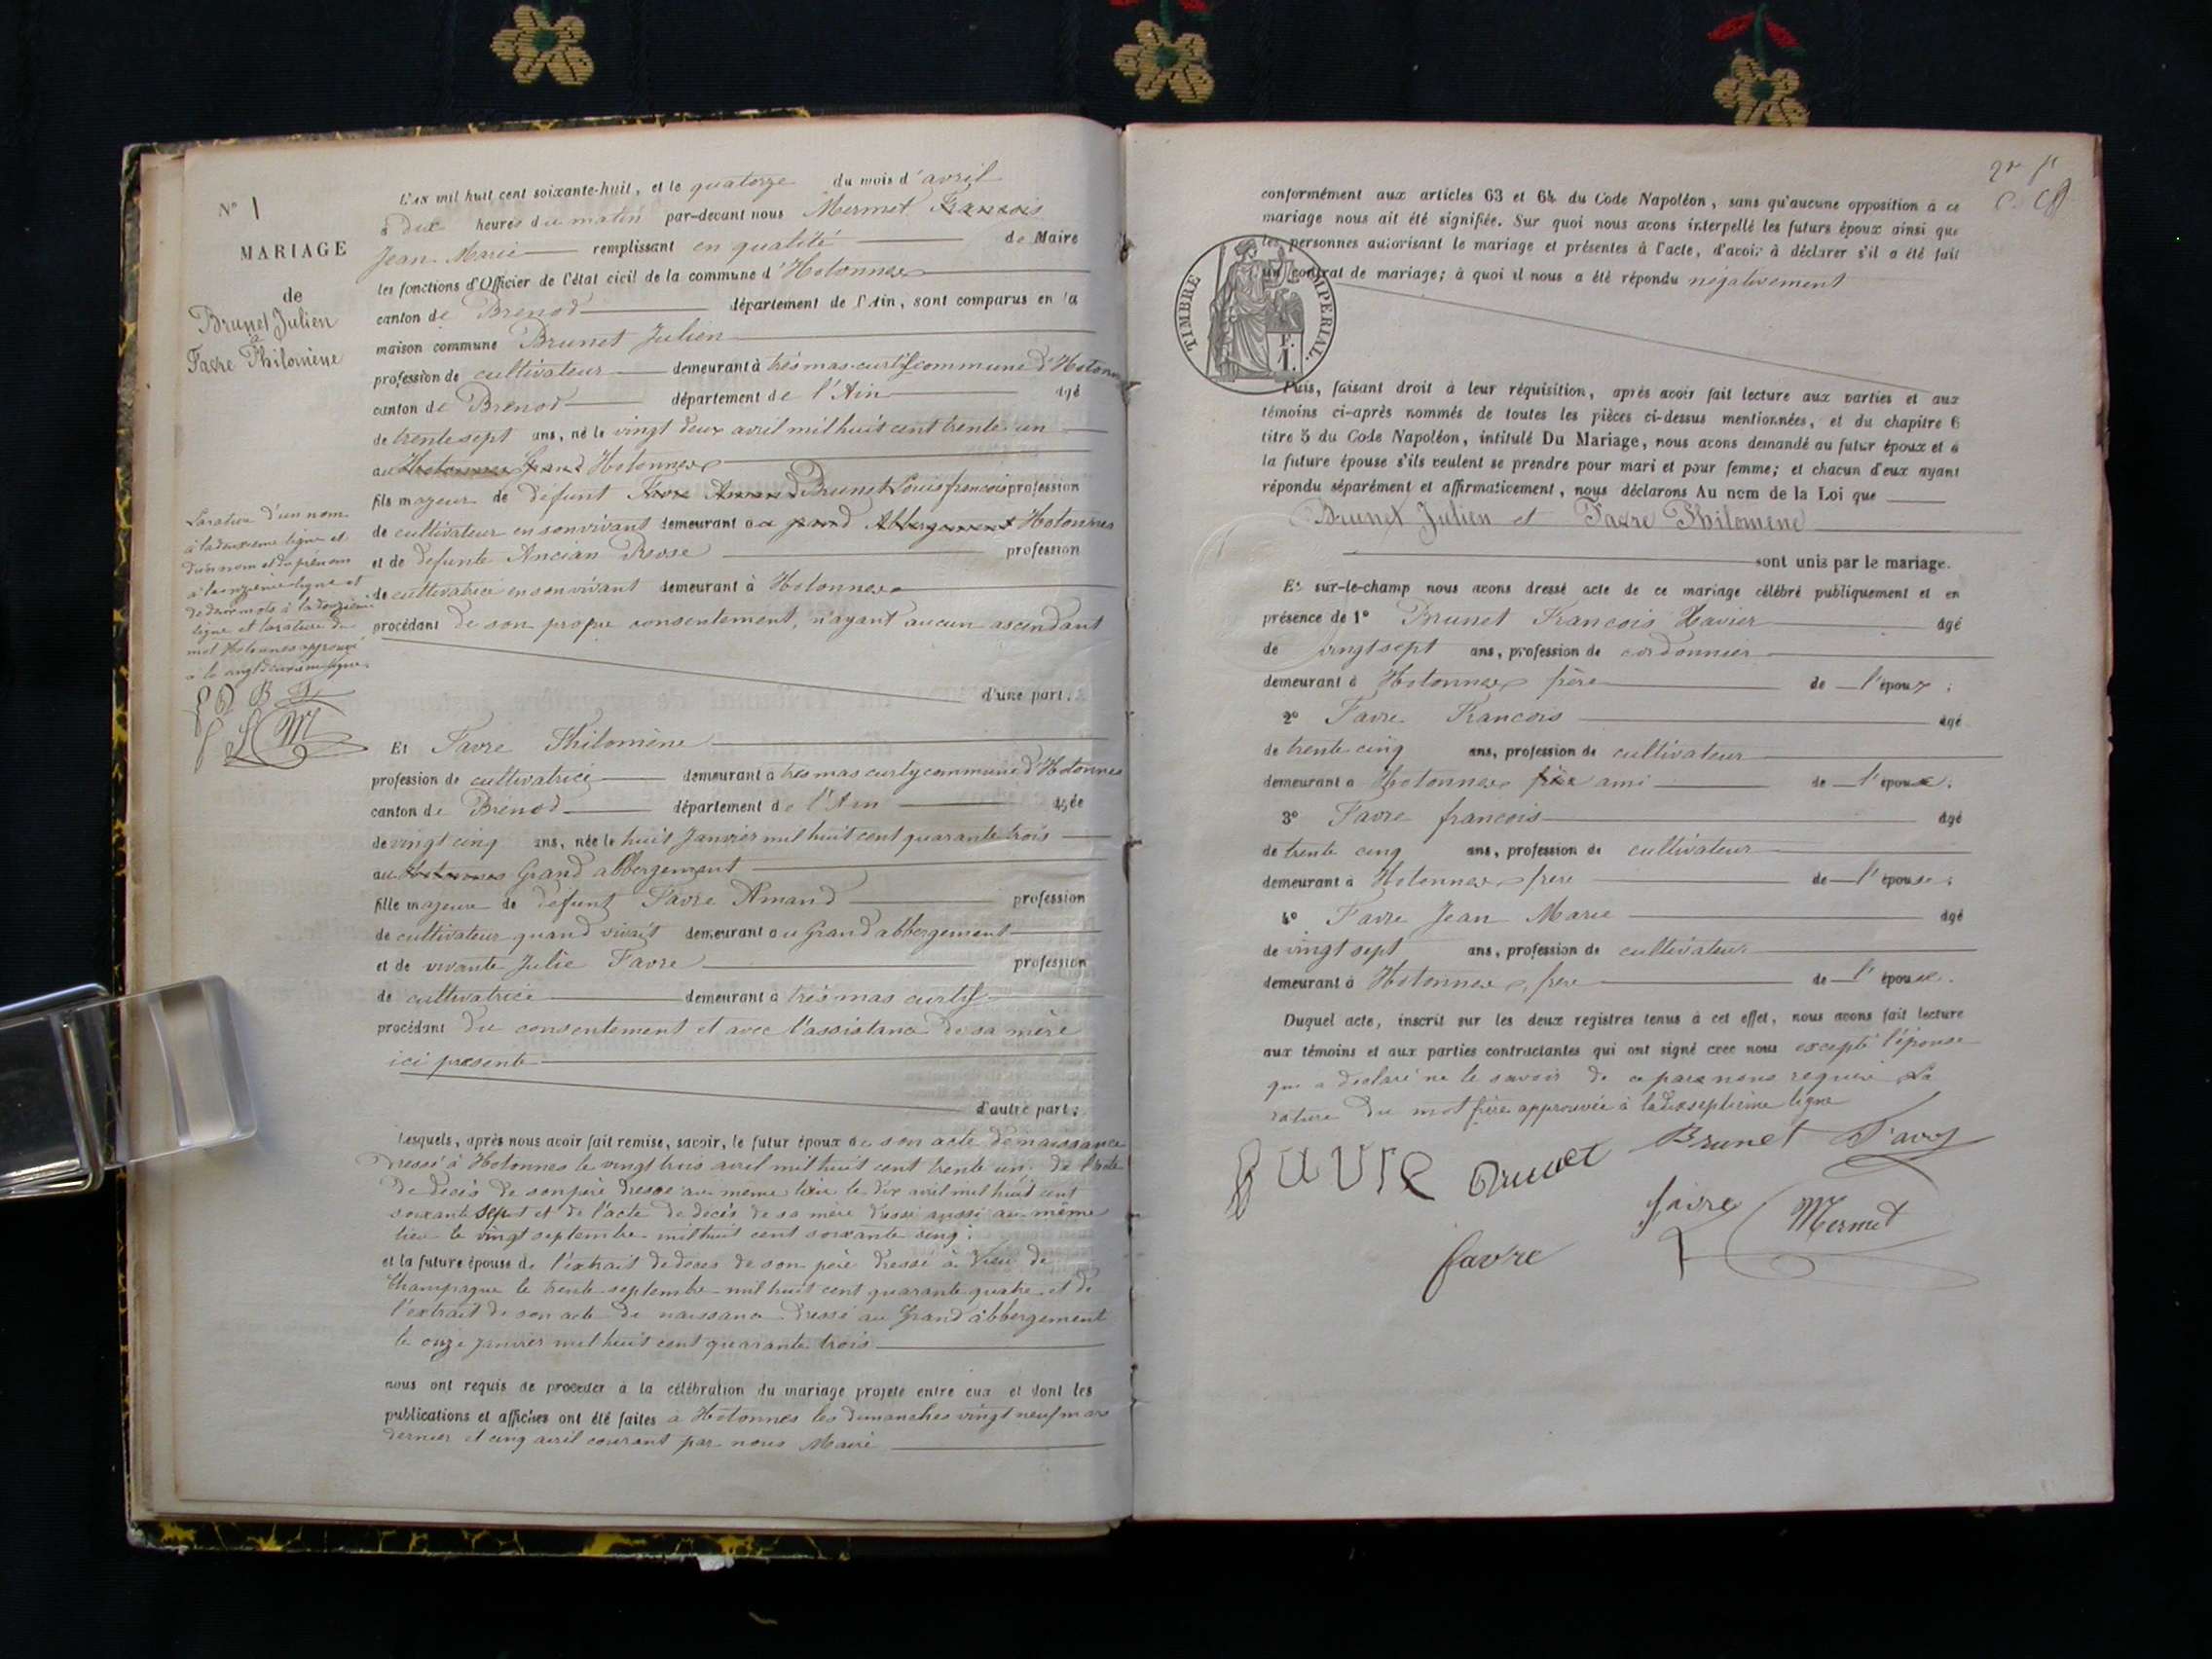 N° 1
MARIAGE
de
Brunet Julien
à
Favre Philomène
L'an mil huit cent soixante-huit, et le quatorze du mois d'avril
à dix heures du matin par-devant nous Mermet François
Jean Marie remplissant en qualité de Maire
les fonctions d'Officier de l'état civil de la commune d'Hotonnes
canton de Brenod département de l'Ain, sont comparus en la
maison commune Brunet Julien
profession de cultivateur demeurant à très mas curtif commune d'Hotonnes
canton de Brenod département de l'Ain âgé
de trente sept ans, né le vingt deux avril mil huit cent trente un
au Hotonnes Grand Hotonnes
fils majeur de défunt Favre Amand Brunet Louis françois profession
de cultivateur en son vivant demeurant au grand Abbergement Hotonnes
et de defunte Ancian profession
de cultivatrice en son vivant demeurant à Hotonnes
procédant de son propre consentement, n'ayant aucun ascendant
d'une part.
La rature d'un nom
à la deuxieme ligne et
d'un nom et du prénom
à la onzieme ligne et
de deux mots à la douzième
ligne et la rature du
mot Hotonnes approuvé
à la vingt deuxieme ligne.
Et Favre Philomène
profession de cultivatrice demeurant à très mas curty commune d'Hotonnes
canton de Brenod département de l'Ain âgée
de vingt cinq ans, née le huit Janvier mil huit cent quarante trois
au Hotonnes Grand abbergement
fille majeure de défunt Favre Amand profession
de cultivateur quand vivait demeurant au Grand abbergement
et de vivante Julie Favre profession
de cultivatrice demeurant à très mas curtif
procédant du consentement et avec l'assistance de sa mère
ici presente
d'autre part;
Lesquels, après nous avoir fait remise, savoir, le futur époux de son acte de naissance
dressé à Hotonnes le vingt trois avril mil huit cent trente un, de l'acte
de decès de son père dressé au même lieu le dix avril mil huit cent
soixante sept et de l'acte de decès de sa mère dressé aussi au même
lieu le vingt septembre mil huit cent soixante cinq;
et la future épouse de l'extrait de deces de son père dressé à Vieu de
Champagne le trente septembre mil huit cent quarante quatre et de
l'extrait de son acte de naissance dressé au Grand abbergement
le onze janvier mil huit cent quarante trois
nous ont requis de procéder à la célébration du mariage projeté entre eux et dont les
publications et affiches ont été faites à Hotonnes les dimanches vingt neuf mars
dernier et cinq avril courant par nous Maire
conformément aux articles 63 et 64 du Code Napoléon, sans qu'aucune opposition à ce
mariage nous ait été signifiée. Sur quoi nous avons interpellé les futurs époux ainsi que
les personnes autorisant le mariage et présentes à l'acte, d'avoir à déclarer s'il a été fait
un contrat de mariage; à quoi il nous a été répondu négativement
TIMBRE IMPERIAL.
F. 1.
Puis, faisant droit à leur réquisition, après avoir fait lecture aux parties et aux
témoins ci-après nommés de toutes les pièces ci-dessus mentionnées, et du chapitre 6
titre 5 du Code Napoléon, intitulé Du Mariage, nous avons demandé au futur époux et à
la future épouse s'ils veulent se prendre pour mari et pour femme; et chacun d'eux ayant
répondu séparément et affirmativement, nous déclarons Au nom de la Loi que
Brunet Julien et Favre Philomène
sont unis par le mariage.
Et sur-le-champ nous avons dressé acte de ce mariage célébré publiquement et en
présence de 1° Brunet François Xavier âgé
de vingt sept ans, profession de cordonnier
demeurant à Hotonnes frère de l'époux;
2° Favre François âgé
de trente cinq ans, profession de cultivateur
demeurant à Hotonnes frère ami de l'époux;
3° Favre françois âgé
de trente cinq ans, profession de cultivateur
demeurant à Hotonnes frère de l'épouse;
4° Favre Jean Marie âgé
de vingt sept ans, profession de cultivateur
demeurant à Hotonnes, frere de l'épouse.
Duquel acte, inscrit sur les deux registres tenus à cet effet, nous avons fait lecture
aux témoins et aux parties contractantes qui ont signé avec nous excepté l'épouse
qui a declaré ne le savoir de ce par nous requise La
rature du mot frère approuvée à la dixseptieme ligne
favre Brunet Brunet Favre
favre Mermet
favre